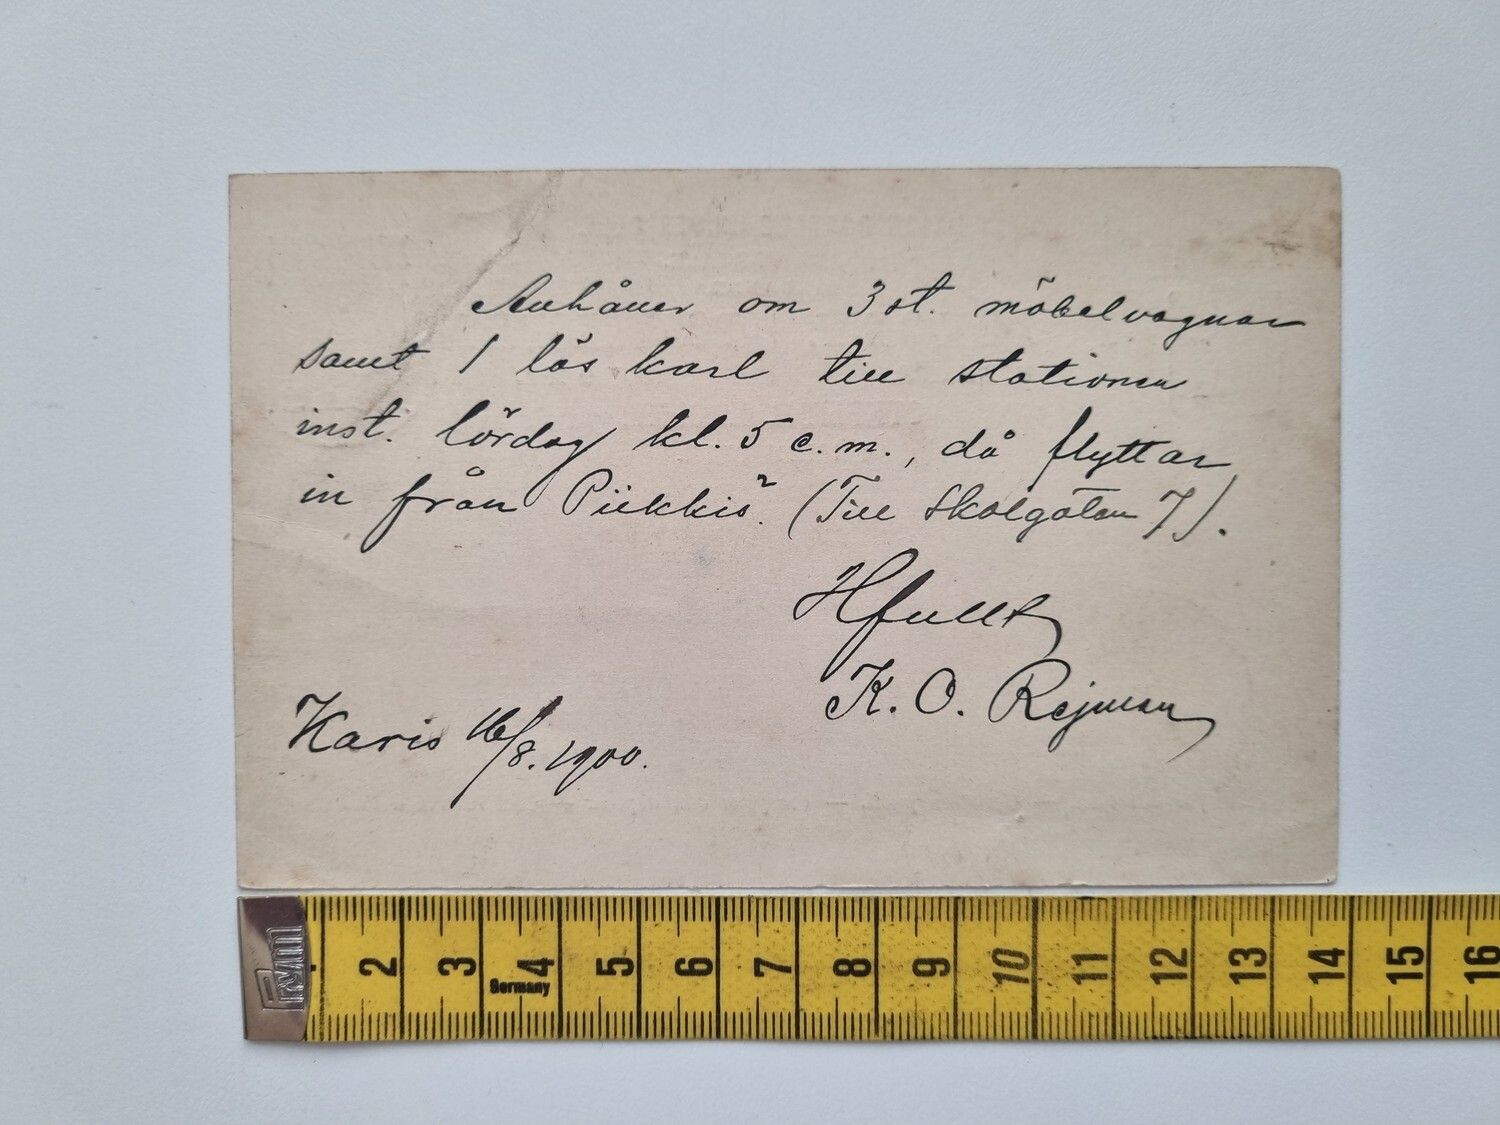 Anhåller om 3 st. möbelvagnar
samt 1 lös karl till stationen
inst. lördag kl. 5 e.m., då flyttar
in från Piikkis. (Till Skolgatan 7).
Hfullt
K. O. Rejman
Karis 16/8. 1900.
Prym
Germany
2 3 4 5 6 7 8 9 10 11 12 13 14 15 16